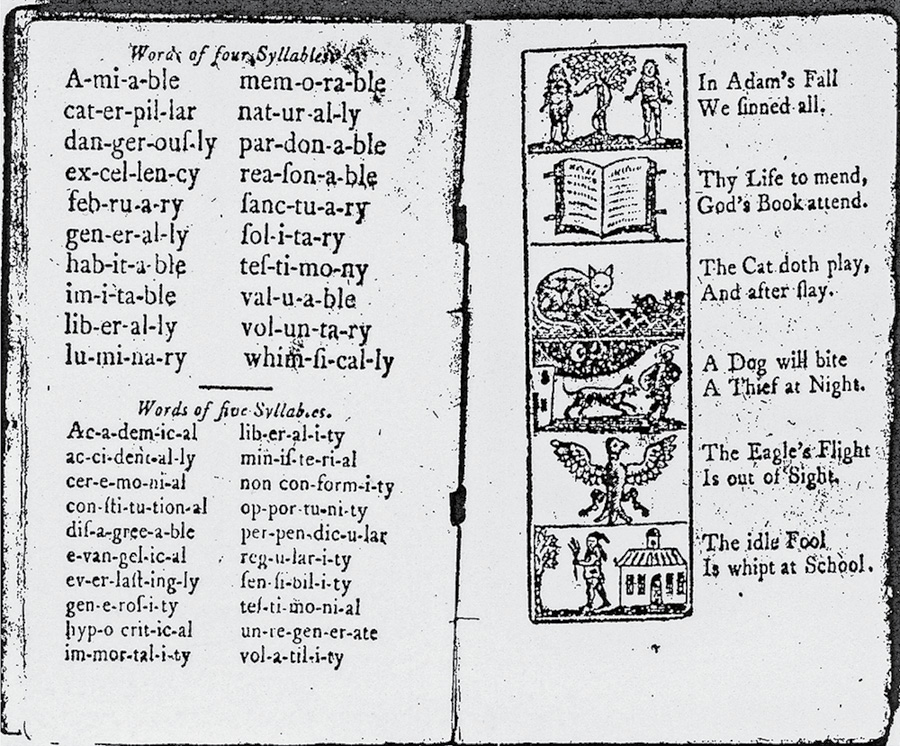 Words of four Syllables.
A-mi-a-ble mem-o-ra-ble
cat-er-pil-lar nat-ur-al-ly
dan-ger-ouſ-ly par-don-a-ble
ex-cel-len-cy rea-ſon-a-ble
feb-ru-a-ry ſanc-tu-a-ry
gen-er-al-ly ſol-i-ta-ry
hab-it-a-ble teſ-ti-mo-ny
im-i-ta-ble val-u-a-ble
lib-er-al-ly vol-un-ta-ry
lu-mi-na-ry whim-ſi-cal-ly
Words of five Syllables.
Ac-a-dem-ic-al lib-er-al-i-ty
ac-ci-dent-al-ly min-iſ-te-ri-al
cer-e-mo-ni-al non con-form-i-ty
con-ſti-tu-tion-al op-por-tu-ni-ty
diſ-a-gree-a-ble per-pen-dic-u-lar
e-van-gel-ic-al reg-u-lar-i-ty
ev-er-laſt-ing-ly ſen-ſi-bil-i-ty
gen-e-roſ-i-ty teſ-ti-mo-ni-al
hyp-o crit-ic-al un-re-gen-er-ate
im-mor-tal-i-ty vol-a-til-i-ty
In Adam's Fall
We ſinned all.
Thy Life to mend,
God's Book attend.
The Cat doth play,
And after ſlay.
A Dog will bite
A Thief at Night.
The Eagle's Flight
Is out of Sight.
The idle Fool
Is whipt at School.